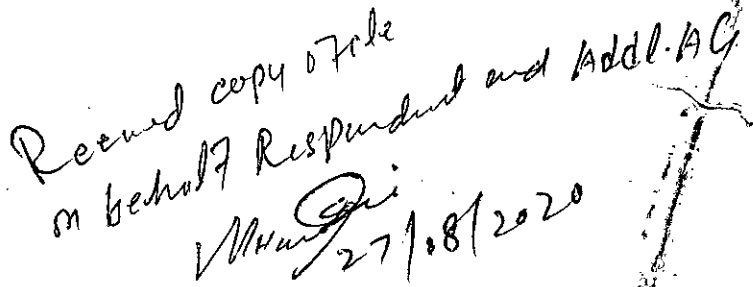 Received copy of file
on behalf Respondent and Addl. AG
27/08/2020